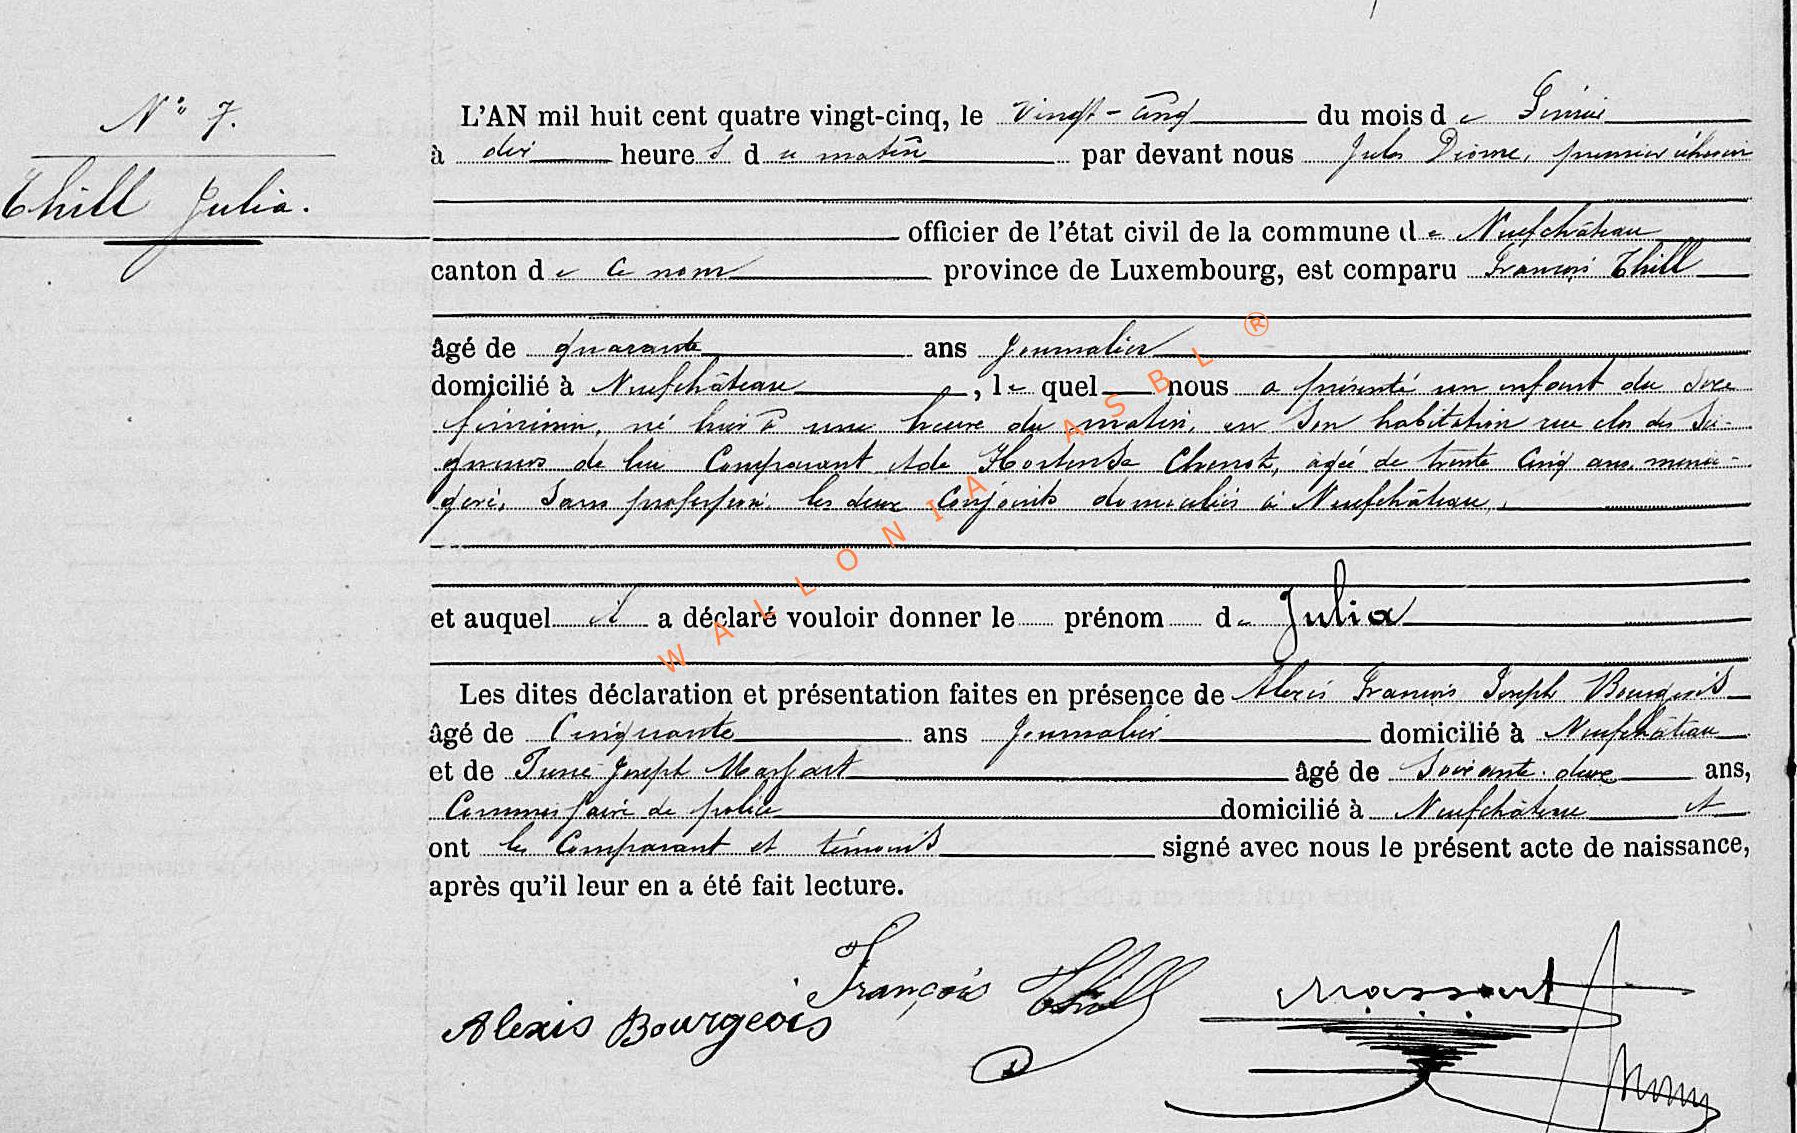 N° 7.
Thill Julia.
L'AN mil huit cent quatre vingt-cinq, le vingt-cinq du mois de Février
à dix heures du matin par devant nous Jules Diome, premier échevin
officier de l'état civil de la commune de Neufchâteau
canton de ce nom province de Luxembourg, est comparu François Thill
âgé de quarante ans journalier
domicilié à Neufchâteau, le quel nous a présenté un enfant du sexe
féminin, né hier à une heure du matin, en son habitation rue clos des Sei-
gneurs de lui Comparant et de Hortense Chenot, âgée de trente cinq ans, mena-
gère, sans profession, les deux conjoints domiciliés à Neufchâteau,
et auquel il a déclaré vouloir donner le prénom de Julia
Les dites déclaration et présentation faites en présence de Alexis François Joseph Bourgeois
âgé de Cinquante ans Journalier domicilié à Neufchâteau
et de Pierre Joseph Massart âgé de Soixante-deux ans,
Commissaire de police domicilié à Neufchâteau et
ont les Comparant et témoins signé avec nous le présent acte de naissance,
après qu'il leur en a été fait lecture.
François Thill
Alexis Bourgeois
Massart
WALLONIA ASBL ®